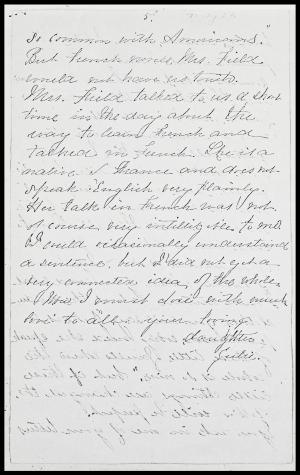 5.
so common with Americans."
But French nouns Mrs. Field
would not have us trust.
Mrs. Field talked to us a short
time in the day about the
way to learn French and
talked in French. She is a
native of France and does not
speak English very plainly.
Her talk in French was not
of course very intelligible to me
I could occasionally understand
a sentence, but I did not get a
very connected idea of the whole.
I must close with much
love to all your loving
daughter
Julie.